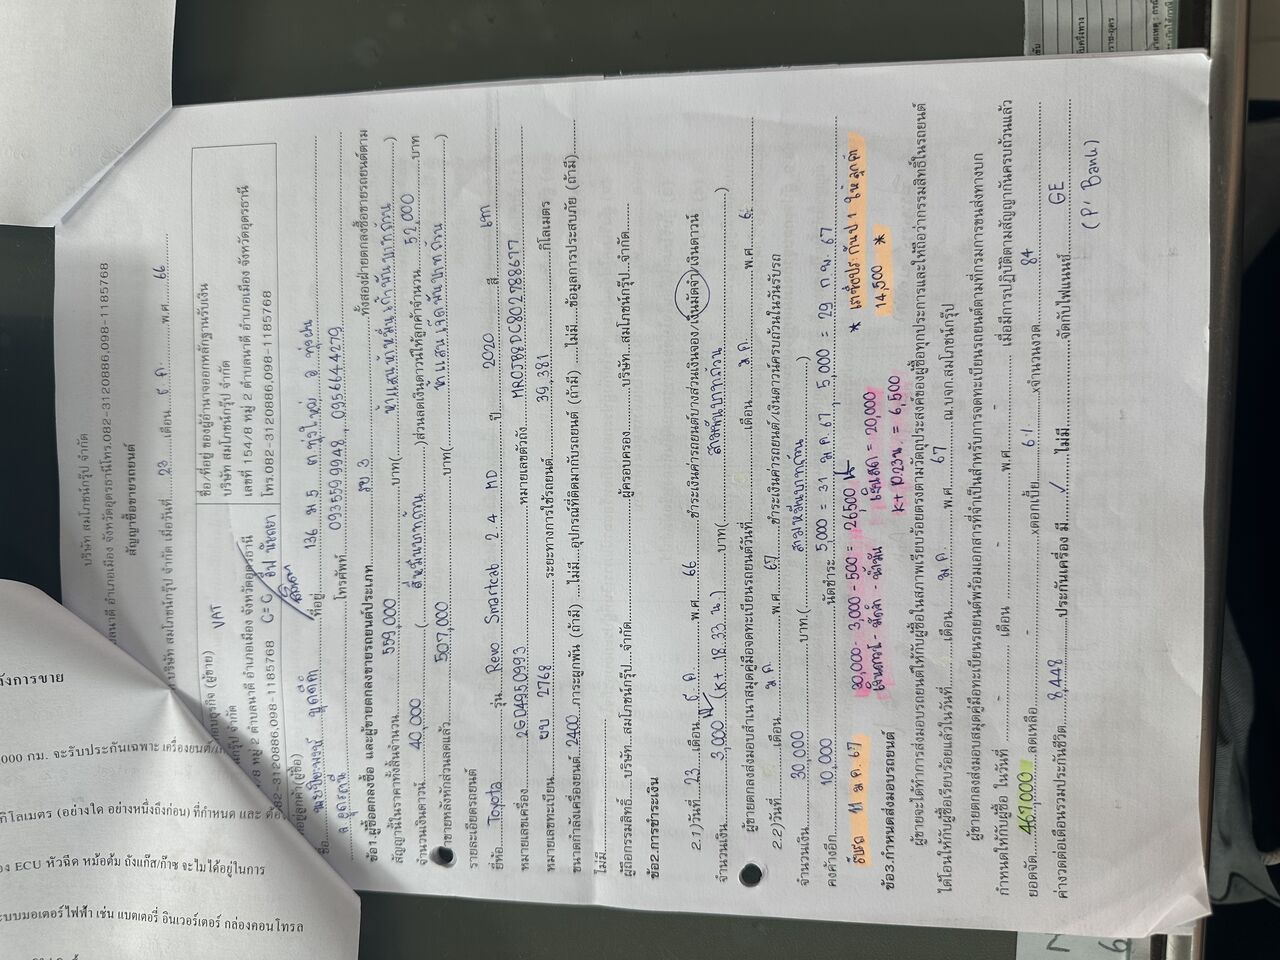 บริษัท สมโภชน์กรุ๊ป จำกัด
อำเภอเมือง จังหวัดอุดรธานีโทร.082-3120886,098-1185768
สัญญาซื้อขายรถยนต์
บริษัท สมโภชน์กรุ๊ป จำกัด เมื่อวันที่ 23 เดือน ธ.ค. พ.ศ. 66
(ผู้ขาย) VAT
ชื่อ/ที่อยู่ ของผู้อำนาจออกหลักฐานรับเงิน
บริษัท สมโภชน์กรุ๊ป จำกัด
หมู่ 2 ตำบลนาดี อำเภอเมือง จังหวัดอุดรธานี
เลขที่ 154/8 หมู่ 2 ตำบลนาดี อำเภอเมือง จังหวัดอุดรธานี
82-3120886,098-1185768
โทร.082-3120886,098-1185768
(ผู้ซื้อ)
ที่อยู่ 136 ม 5 ต ทุ่งใหญ่ อ ทุ่งฝน
จ อุดรธานี โทรศัพท์ 0935599948, 0956644279
ข้อ1.ผู้ซื้อตกลงซื้อ และผู้ขายตกลงขายรถยนต์ประเภท รย 3 ทั้งสองฝ่ายตกลงซื้อขายรถยนต์ตาม
สัญญานี้ในราคาทั้งสิ้นจำนวน 559,000 บาท( ห้าแสนห้าหมื่นเก้าพันบาทถ้วน )
จำนวนเงินดาวน์ 40,000 ( สี่หมื่นบาทถ้วน )ส่วนลดเงินดาวน์ให้ลูกค้าจำนวน 52,000 บาท
ขายหลังหักส่วนลดแล้ว 507,000 บาท( ห้าแสนเจ็ดพันบาทถ้วน )
รายละเอียดรถยนต์
ยี่ห้อ Toyota รุ่น Revo Smartcab 2.4 MD ปี 2020 สี เทา
หมายเลขเครื่อง 2GD4950993 หมายเลขตัวถัง MR0JB8DC802988677
หมายเลขทะเบียน ยบ 2768 ระยะทางการใช้รถยนต์ 39,381 กิโลเมตร
ขนาดกำลังเครื่องยนต์ 2400 ภาระผูกพัน (ถ้ามี) ไม่มี อุปกรณ์ที่ติดมากับรถยนต์ (ถ้ามี) ไม่มี ข้อมูลการประสบภัย (ถ้ามี)
ไม่มี
ผู้ถือกรรมสิทธิ์ บริษัท สมโภชน์กรุ๊ป จำกัด ผู้ครอบครอง บริษัท สมโภชน์กรุ๊ป จำกัด
ข้อ2.การชำระเงิน
2.1)วันที่ 23 เดือน ธ.ค พ.ศ. 66 ชำระเงินค่ารถยนต์บางส่วนเงินจอง/เงินมัดจำ/เงินดาวน์
จำนวนเงิน 3,000 (K+ 18.33 น.) บาท( สามพันบาทถ้วน )
ผู้ขายตกลงส่งมอบสำเนาสมุดคู่มือจดทะเบียนรถยนต์วันที่ เดือน ม.ค พ.ศ. 6
2.2)วันที่ เดือน ม.ค พ.ศ. 67 ชำระเงินค่ารถยนต์/เงินดาวน์ครบถ้วนในวันรับรถ
จำนวนเงิน 30,000 บาท( สามหมื่นบาทถ้วน )
คงค้างอีก 10,000 นัดชำระ 5,000 = 31 ม.ค 67, 5,000 = 29 ก.พ. 67
รับรถ 11 ม.ค. 67 30,000 - 3,000 - 500 = 26500 น * เราซื้อประกันป 1 ให้ลูกค้า
เงินดาวน์ - มัดจำ - น้ำมัน เงินสด = 20,000 14,500 *
K+ 10.23 น. = 6,500
ข้อ3.กำหนดส่งมอบรถยนต์
ผู้ขายจะได้ทำการส่งมอบรถยนต์ให้กับผู้ซื้อในสภาพเรียบร้อยตรงตามวัตถุประสงค์ของผู้ซื้อทุกประการและให้ถือว่ากรรมสิทธิ์ในรถยนต์
ได้โอนให้กับผู้ซื้อเรียบร้อยแล้วในวันที่ เดือน ม.ค. พ.ศ. 67 ณ.บจก.สมโภชน์กรุ๊ป
ผู้ขายตกลงส่งมอบสมุดคู่มือทะเบียนรถยนต์พร้อมเอกสารที่จำเป็นสำหรับการจดทะเบียนรถยนต์ตามที่กรมการขนส่งทางบก
กำหนดให้กับผู้ซื้อ ในวันที่ - เดือน - พ.ศ. - เมื่อมีการปฏิบัติตามสัญญากันครบถ้วนแล้ว
ยอดจัด 467,000 ลดเหลือ - xดอกเบี้ย 61 xจำนวนงวด 84
ค่างวดต่อเดือนรวมประกันชีวิต 8,448 ประกันเครื่อง มี ✓ ไม่มี จัดกับไฟแนนซ์ GE
(P' Bank)
ังการขาย
000 กม. จะรับประกันเฉพาะ เครื่องยนต์
กิโลเมตร (อย่างใด อย่างหนึ่งถึงก่อน) ที่กำหนด และ
ECU หัวฉีด หม้อต้ม ถังแก๊สก๊าซ จะไม่ได้อยู่ในการ
ะบบมอเตอร์ไฟฟ้า เช่น แบตเตอรี่ อินเวอร์เตอร์ กล่องคอนโทรล